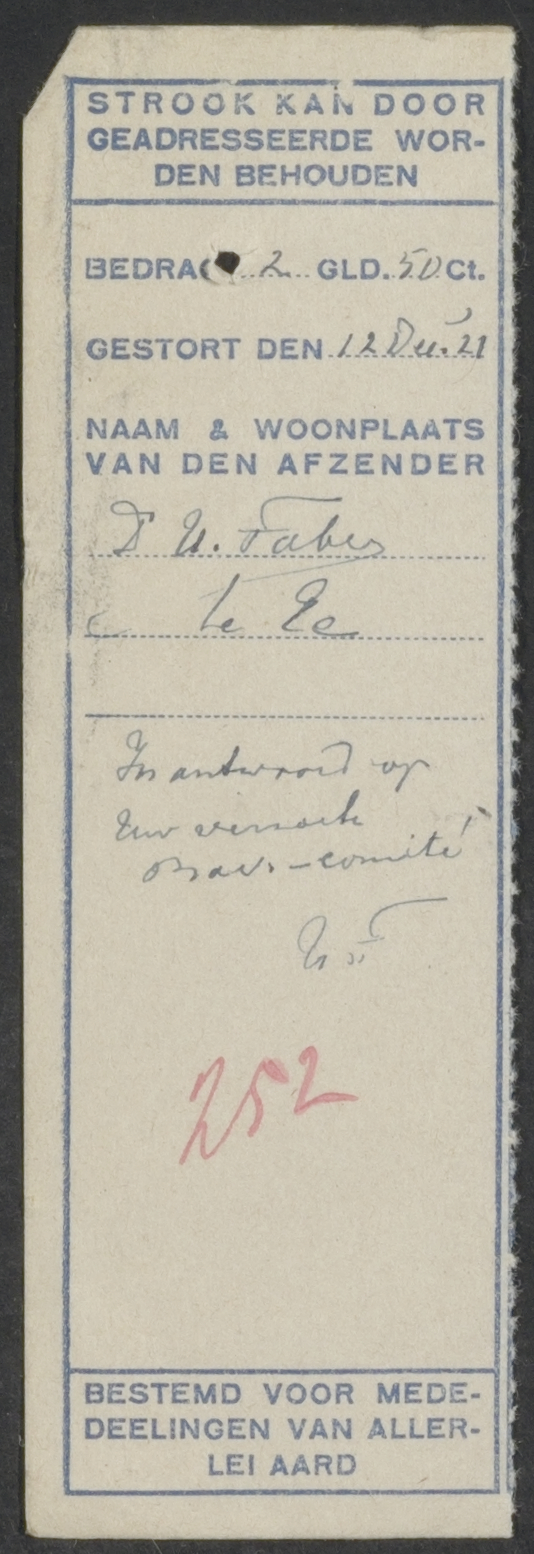 STROOK KAN DOOR
GEADRESSEERDE WOR-
DEN BEHOUDEN
BEDRAG 2 GLD. 50 Ct.
GESTORT DEN 12 Dec. 21
NAAM & WOONPLAATS
VAN DEN AFZENDER
D U. Faber
te Ee
In antwoord op
Uw verzoek
comité
UF
252
BESTEMD VOOR MEDE-
DEELINGEN VAN ALLER-
LEI AARD